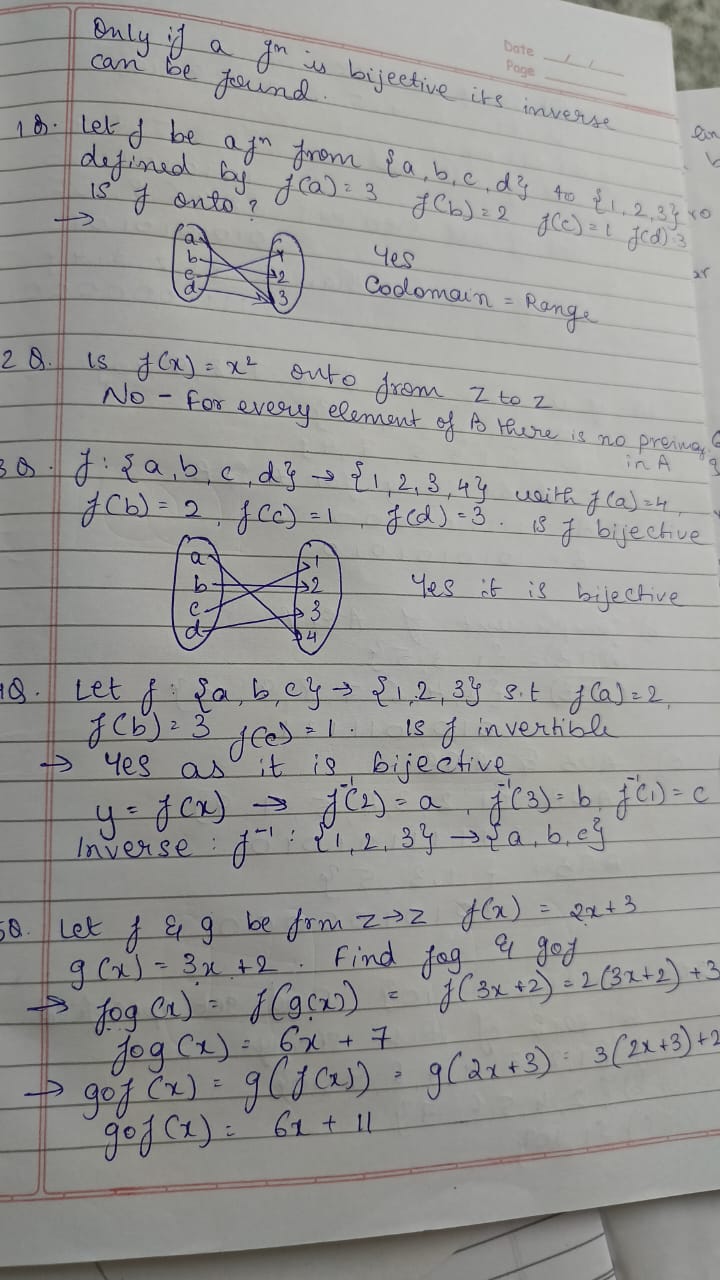 Date
Page
Only if a fn is bijective its inverse
can be found.
1Q. Let f be a fn from {a, b, c, d} to {1, 2, 3}
defined by f(a) = 3 f(b) = 2 f(c) = 1 f(d) = 3
Is f onto?
→
a
b
c
d
1
2
3
Yes
Codomain = Range
2Q. Is f(x) = x² onto from Z to Z
No - For every element of B there is no preimag
in A
3Q. f : {a, b, c, d} → {1, 2, 3, 4} with f(a) = 4,
f(b) = 2, f(c) = 1, f(d) = 3. Is f bijective
a
b
c
d
1
2
3
4
Yes it is bijective
Q. Let f : {a, b, c} → {1, 2, 3} s.t f(a) = 2,
f(b) = 3 f(c) = 1. Is f invertible
→ Yes as it is bijective
y = f(x) → f⁻¹(2) = a, f⁻¹(3) = b, f⁻¹(1) = c
Inverse : f⁻¹ : {1, 2, 3} → {a, b, c}
5Q. Let f & g be from Z→Z f(x) = 2x+3
g(x) = 3x + 2. Find fog & gof
→ fog(x) = f(g(x)) = f(3x+2) = 2(3x+2) + 3
fog(x) = 6x + 7
→ gof(x) = g(f(x)) = g(2x+3) = 3(2x+3)+2
gof(x) = 6x + 11